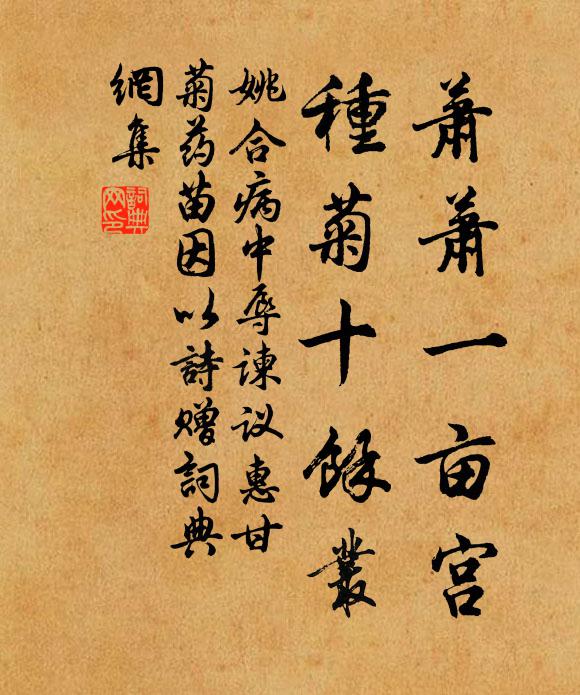 蕭蕭一亩宫
種菊十餘叢
姚合病中辱諫议惠甘
菊药苗因以詩赠詞典
網集
詞典
网印